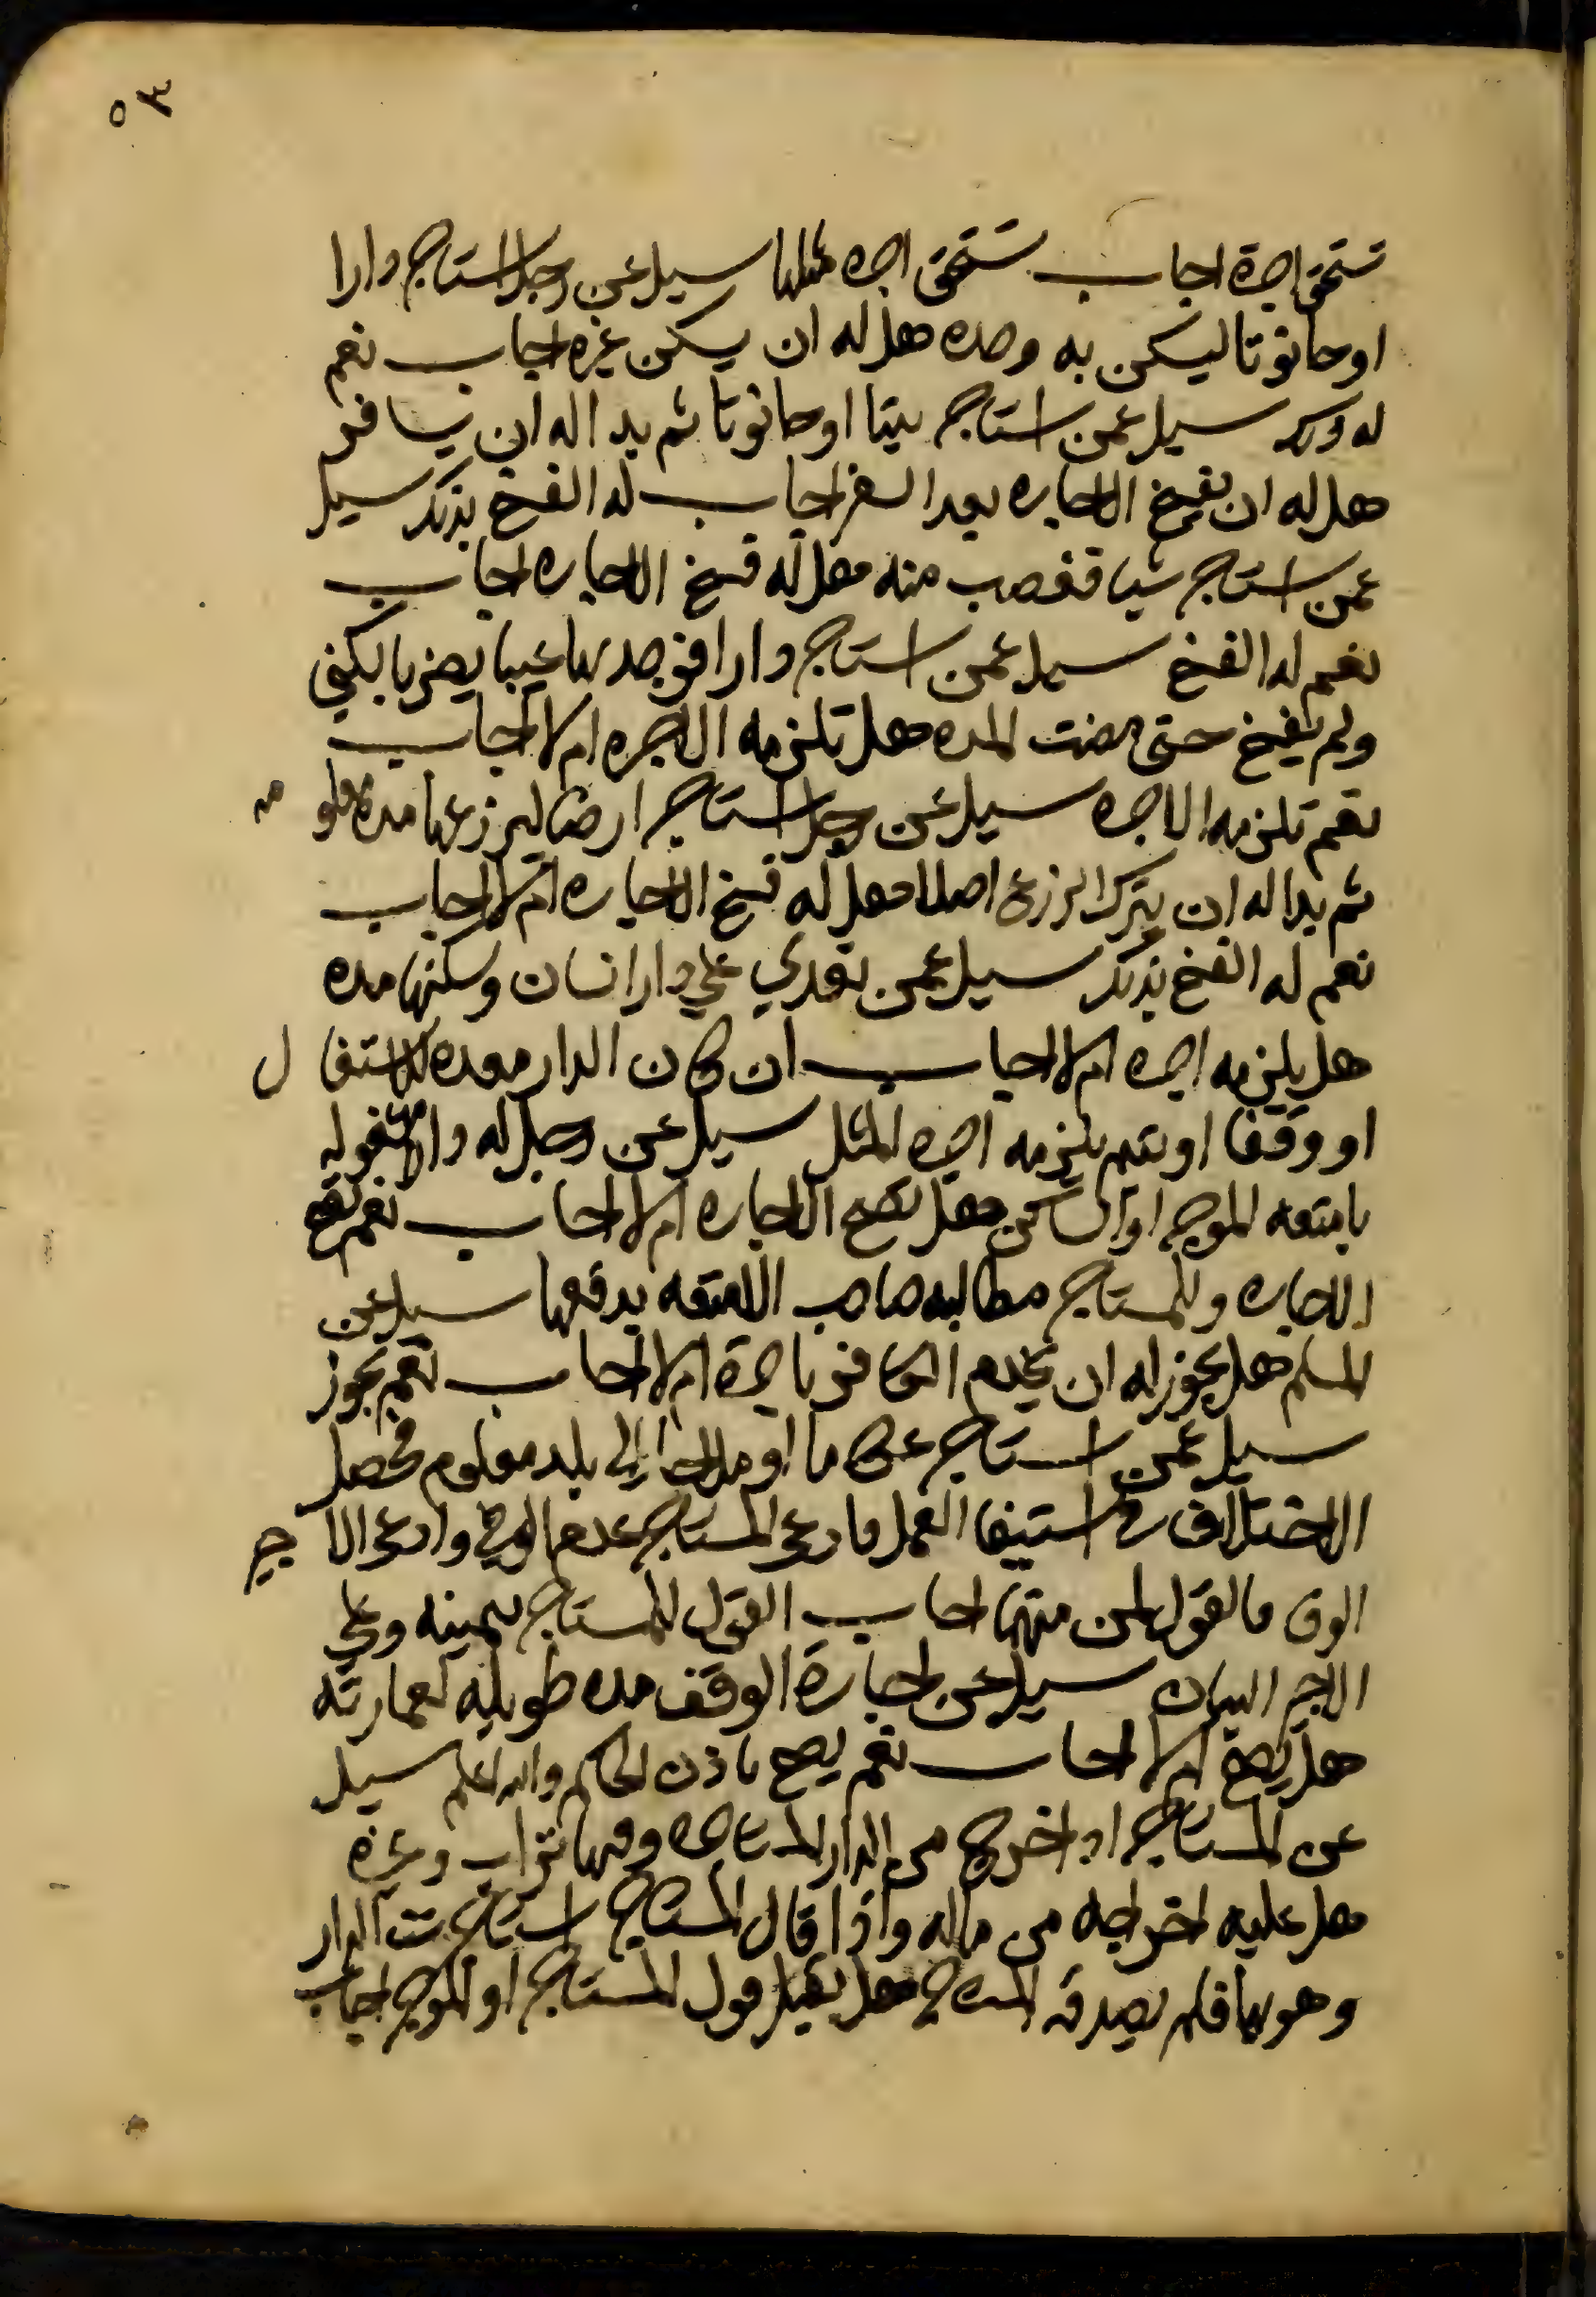 ٥٣
تستحق اجرة اجاب تستحق اجره مثلها سيل عن رجل استاجر دارا
او حانوتا ليسكن به وحده هل له ان يسكن غيره اجاب نعم
له ذلك سيل عمن استاجر بيتا او حانوتا ثم بدا له ان يسافر
هل له ان يفسخ الاجاره بعد السفر اجاب له الفسخ بذلك سيل
عمن استاجر شيا فغصب منه هل له فسخ الاجاره اجاب
نعم له الفسخ سيل عمن استاجر دارا فوجد بها عيبا يضر بالسكني
ولم يفسخ حتى مضت المده هل تلزمه الاجره ام لا اجاب
نعم تلزمه الاجره سيل عن رجل استاجر ارضا ليزرعها مدة معلومه
ثم بدا له ان يترك الزرع اصلا هل له فسخ الاجاره ام لا اجاب
نعم له الفسخ بذلك سيل عمن تعدي علي دار انسان وسكنها مده
هل يلزمه اجره ام لا اجاب ان كان الدار معده للاستغلال
او وقفا او يتيم يلزمه اجره المثل سيل عن رجل له دار مشغوله
بامتعه الموجر او الساكن هل تصح الاجاره ام لا اجاب نعم تصح
الاجاره وللمستاجر مطالبه صاحب الامتعه برفعها سيل عن
المسلم هل يجوز له ان يخدم الكافر باجرة ام لا اجاب نعم يجوز
سيل عمن استاجر عكاما او ملاحا الي بلد معلوم فحصل
الاختلاف في استيفا العمل فادعى المستاجر عدم الوفي وادعى الاجير
الوفا فالقول لمن منهما اجاب القول للمستاجر بيمينه وعلي
الاجير البيان سيل عن اجارة الوقف مده طويله لعمارته
هل يصح ام لا اجاب نعم يصح باذن الحاكم والله اعلم سيل
عن المستاجر اذا خرج من الدار المستاجره وفيها تراب وغيره
هل عليه اخراجه من ماله واذا قال المستاجر استاجرت الدار
وهو بها فلم يصدقه الموجر هل يقبل قول المستاجر او الموجر اجاب